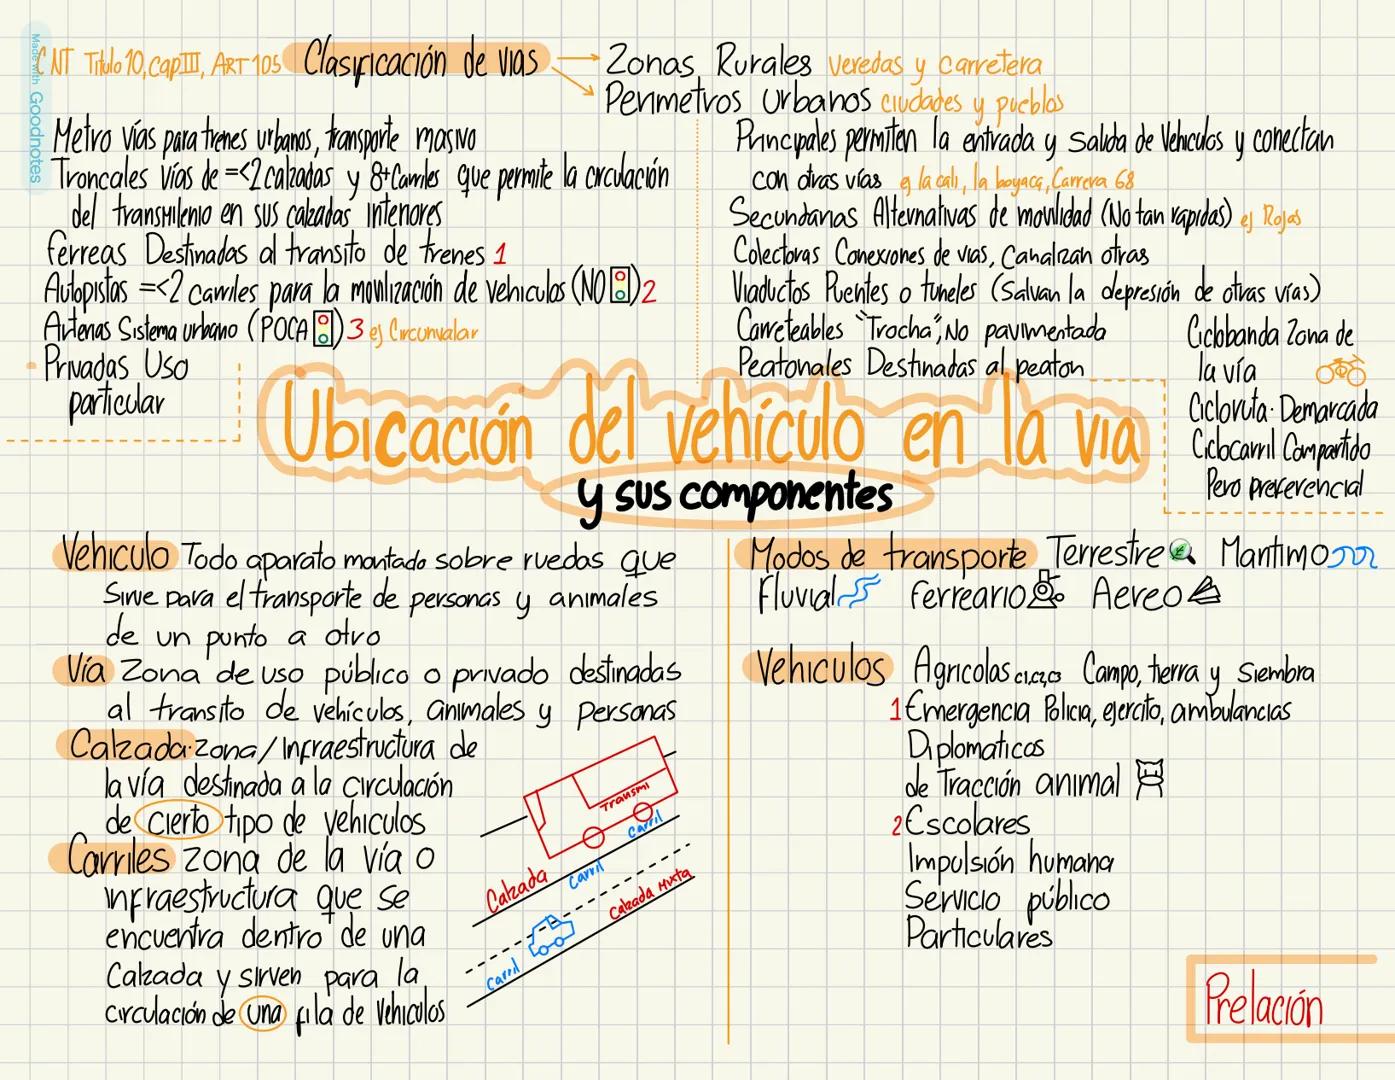 Made with Goodnotes
CNT Titulo 10, cap III, ART 105 Clasificación de vias
Zonas Rurales veredas y carretera
Perimetros Urbanos ciudades y pueblos
Metro vías para trenes urbanos, transporte masivo
Troncales Vías de =<2 calzadas y 8+ Carriles que permite la circulación
del transmilenio en sus calzadas interiores
ferreas Destinadas al transito de trenes 1
Autopistas =<2 carriles para la movilización de vehiculos (NO) 2
Arterias Sistema urbano (POCA) 3 ej Circunvalar
Privadas Uso
particular
Principales permiten la entrada y salida de Vehiculos y conectan
con otras vías ej la cali, la boyaca, Carrera 68
Secundarias Alternativas de movilidad (No tan rapidas) ej Rojas
Colectoras Conexiones de vias, Canalizan otras
Viaductos Puentes o tuneles (Salvan la depresión de otras vías)
Carreteables "Trocha", No pavimentada
Peatonales Destinadas al peaton
Ciclobanda Zona de
la vía
Cicloruta· Demarcada
Ciclocarril Compartido
Pero preferencial
Ubicación del vehículo en la via
y sus componentes
Vehiculo Todo aparato montado sobre ruedas que
Sirve para el transporte de personas y animales
de un punto a otro
Vía Zona de uso público o privado destinadas
al transito de vehículos, animales y personas
Calzada·zona/Infraestructura de
la vía destinada a la circulación
de cierto tipo de vehiculos
Carriles zona de la vía o
infraestructura que se
encuentra dentro de una
Calzada y sirven para la
circulación de una fila de Vehiculos
Transmi
Carril
Calzada
Carril
Calzada Mixta
Carril
Modos de transporte Terrestre Maritimo
Fluvial Ferreario Aereo
Vehiculos Agricolas c1,c2,c3 Campo, tierra y Siembra
1 Emergencia Policia, ejercito, ambulancias
Diplomaticos
de Tracción animal
2 Escolares
Impulsión humana
Servicio público
Particulares
Prelación